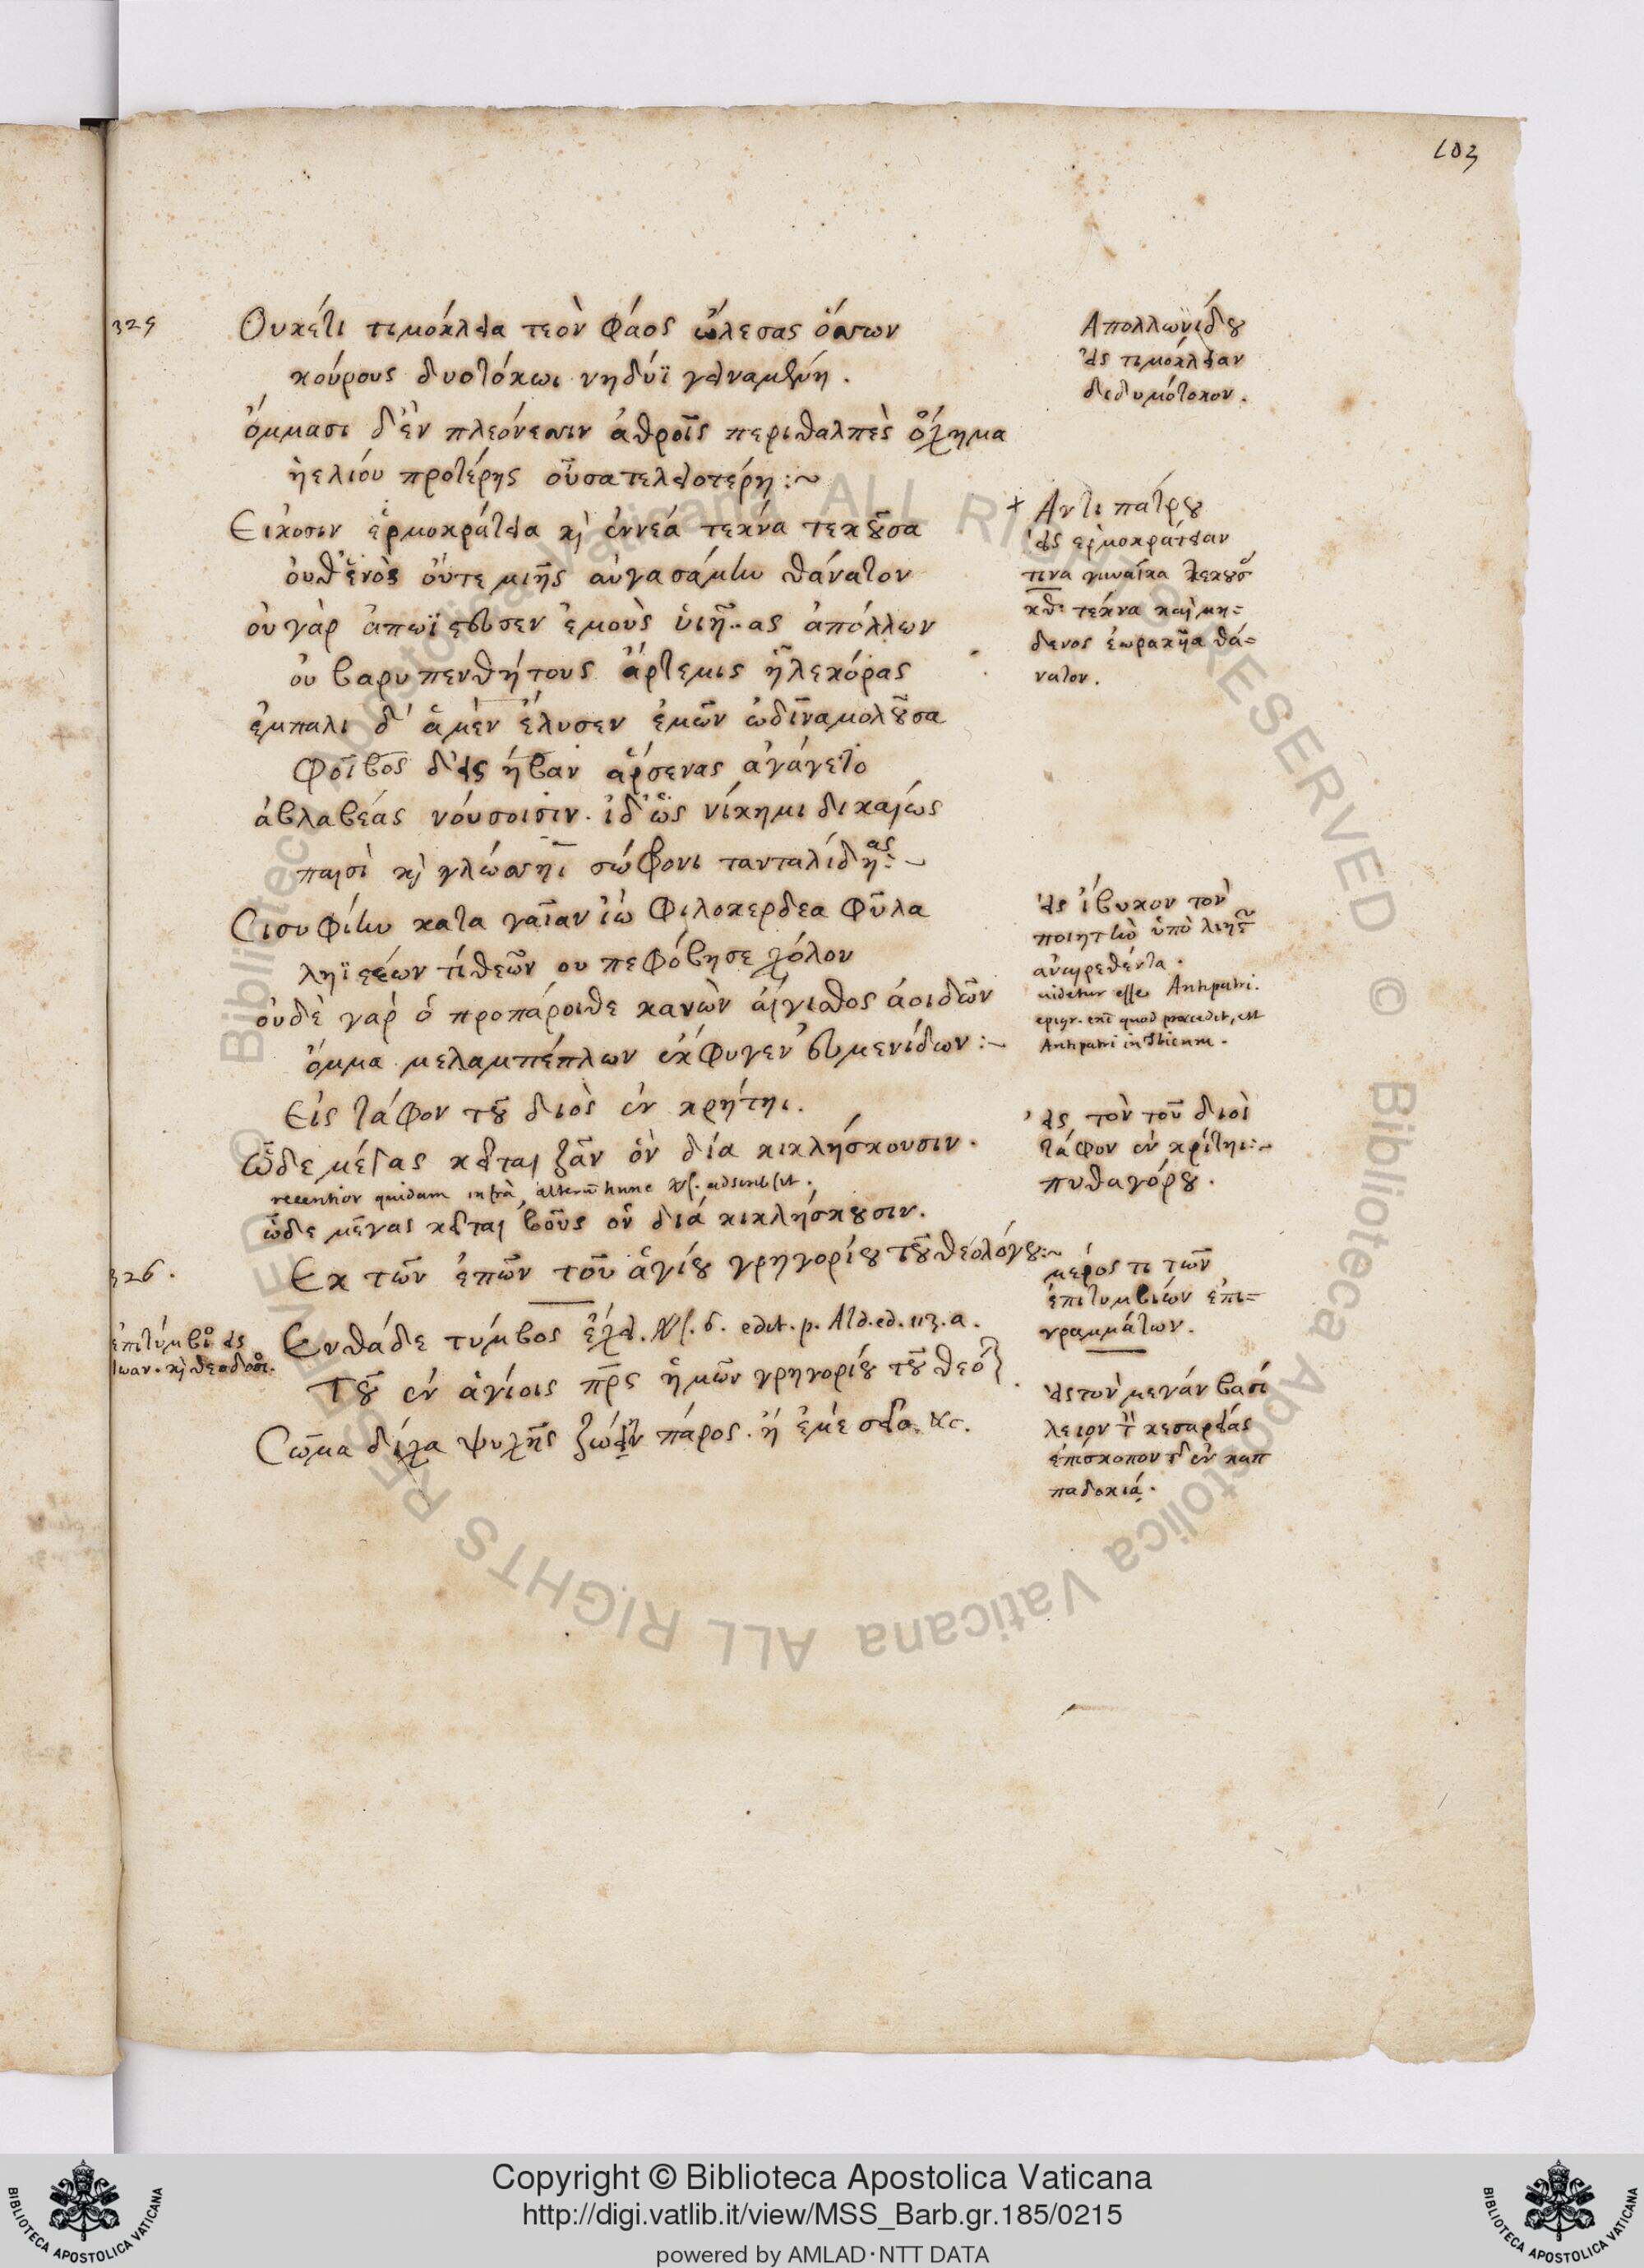 103
325
Ουκέτι τιμόκλεια τεὸν φάος ὤλεσας ὄσσων
κούρους δυοτόκωι νηδύϊ γειναμένη.
ὄμμασι δ' ἐν πλεόνεσσιν ἀθροῖς περιθαλπὲς ὄχημα
ἠελίου προτέρης οὖσα τελειοτέρη:~
Απολλωνίδου
εἰς τιμόκλειαν
διδυμότοκον.
Εικοσιν ἑρμοκράτεια κὶ ἐννέα τεκνα τεκοῦσα
οὐθ' ἑνὸς οὔτε μιῆς αὐγασάμην θάνατον
οὐ γὰρ ἀπωϊστευσεν ἐμοὺς ὑιῆ..ας ἀπόλλων
οὐ βαρυπενθήτους ἄρτεμις ἧλε κόρας
ἔμπαλι δ' ἁ μὲν ἔλυσεν ἐμῶν ὠδῖνα μολοῦσα
Φοῖβος δ' εἰς ἥβαν ἄρσενας ἀγάγετο
ἀβλαβέας νόυσοισιν. ἰδ' ὡς νίκημι δικαίως
παισὶ κὶ γλώσσηι σώφρονι τανταλίδης ας:~
+ Αντιπάτρου
εἰς ἑρμοκράτειαν
τινα γυναῖκα τεκοῦσ
κθ τέκνα καὶ μη=
δενος ἑωρακῆα θά=
νατον.
Σισυφίην κατα γαῖαν ἰὼ φιλοκερδέα φῦλα
ληϊστέων τί θεῶν ου πεφόβησε χόλον
οὐδὲ γὰρ ὁ προπάροιθε κανὼν αἴγισθος ἀοιδῶν
ὄμμα μελαμπέπλων ἐκφυγεν εὐμενίδων:~
εἰς ἴβυκον τὸν
ποιητὴν ὑπὸ ληστ
ἀναιρεθέντα.
uidetur esse Antipatri.
epigr. enī quod præcedit, est
Antipatri in Ibicum.
Εἰς τάφον τοῦ διὸς ἐν κρήτηι.
ὧδε μέγας κεῖται ζὰν ὃν δία κικλήσκουσιν.
recentior quidam infrà alterū hunc
ὧδε μέγας κεῖται βοῦς ὃν διά κικλήσκουσιν.
εἰς τὸν τοῦ διὸς
τάφον ἐν κρίτηι:~
πυθαγόρου.
326.
Εκ τῶν ἐπῶν τοῦ ἁγίου γρηγορίου τοῦ θεολόγου:~
μέρος τι τῶν
ἐπιτυμβιων ἐπι=
γραμμάτων.
ἐπιτύμβιοι εἰς
Ιωαν. κὶ θεοδοσι.
Ενθάδε τύμβος ἔχει. edit. p. Ald. ed. 113. a.
Τοῦ ἐν ἁγίοις πρς ἡμῶν γρηγορίου τοῦ θεο
Σῶμα δίχα ψυχῆς ζώειν πάρος. ἢ ἐμὲ σεῖο &c.
εἰς τὸν μεγάν βασι
λειον τ κεσαρείας
ἐπίσκοπον τ ἐν καπ
παδοκιά.
Copyright © Biblioteca Apostolica Vaticana
http://digi.vatlib.it/view/MSS_Barb.gr.185/0215
powered by AMLAD·NTT DATA
BIBLIOTECA APOSTOLICA VATICANA
BIBLIOTECA APOSTOLICA VATICANA